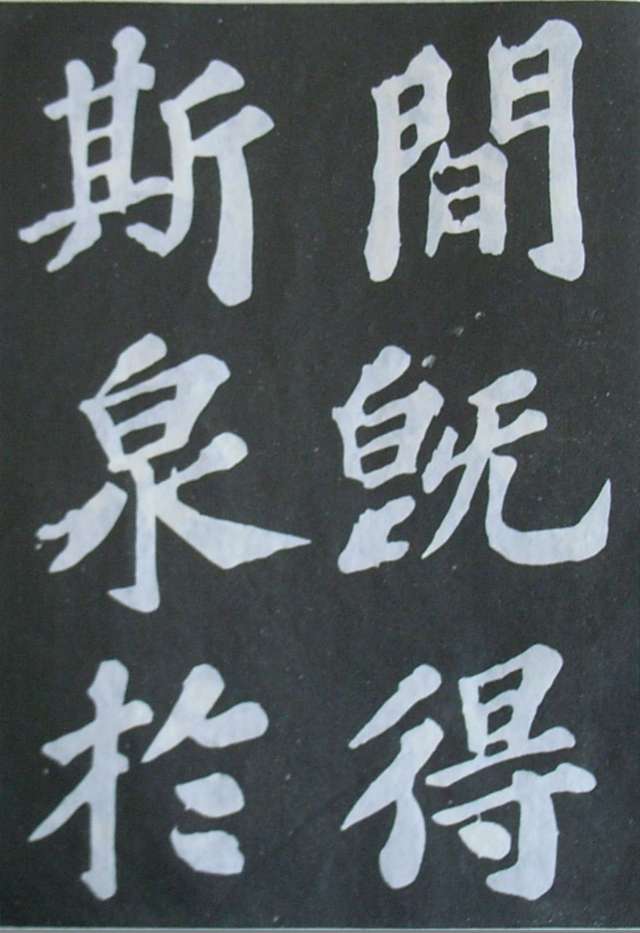 間既得
斯泉於